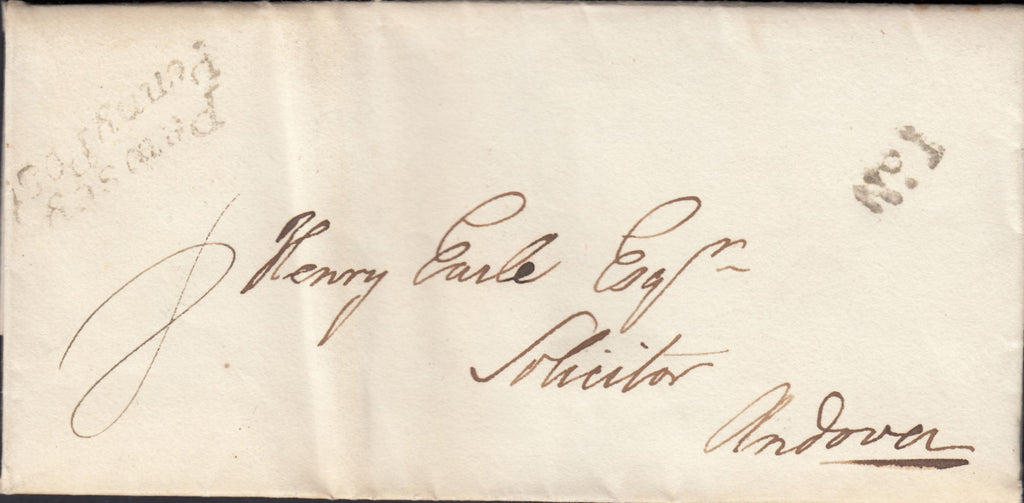 Penny Post
No. 1
Henry Earle Esqr
Solicitor
Andover